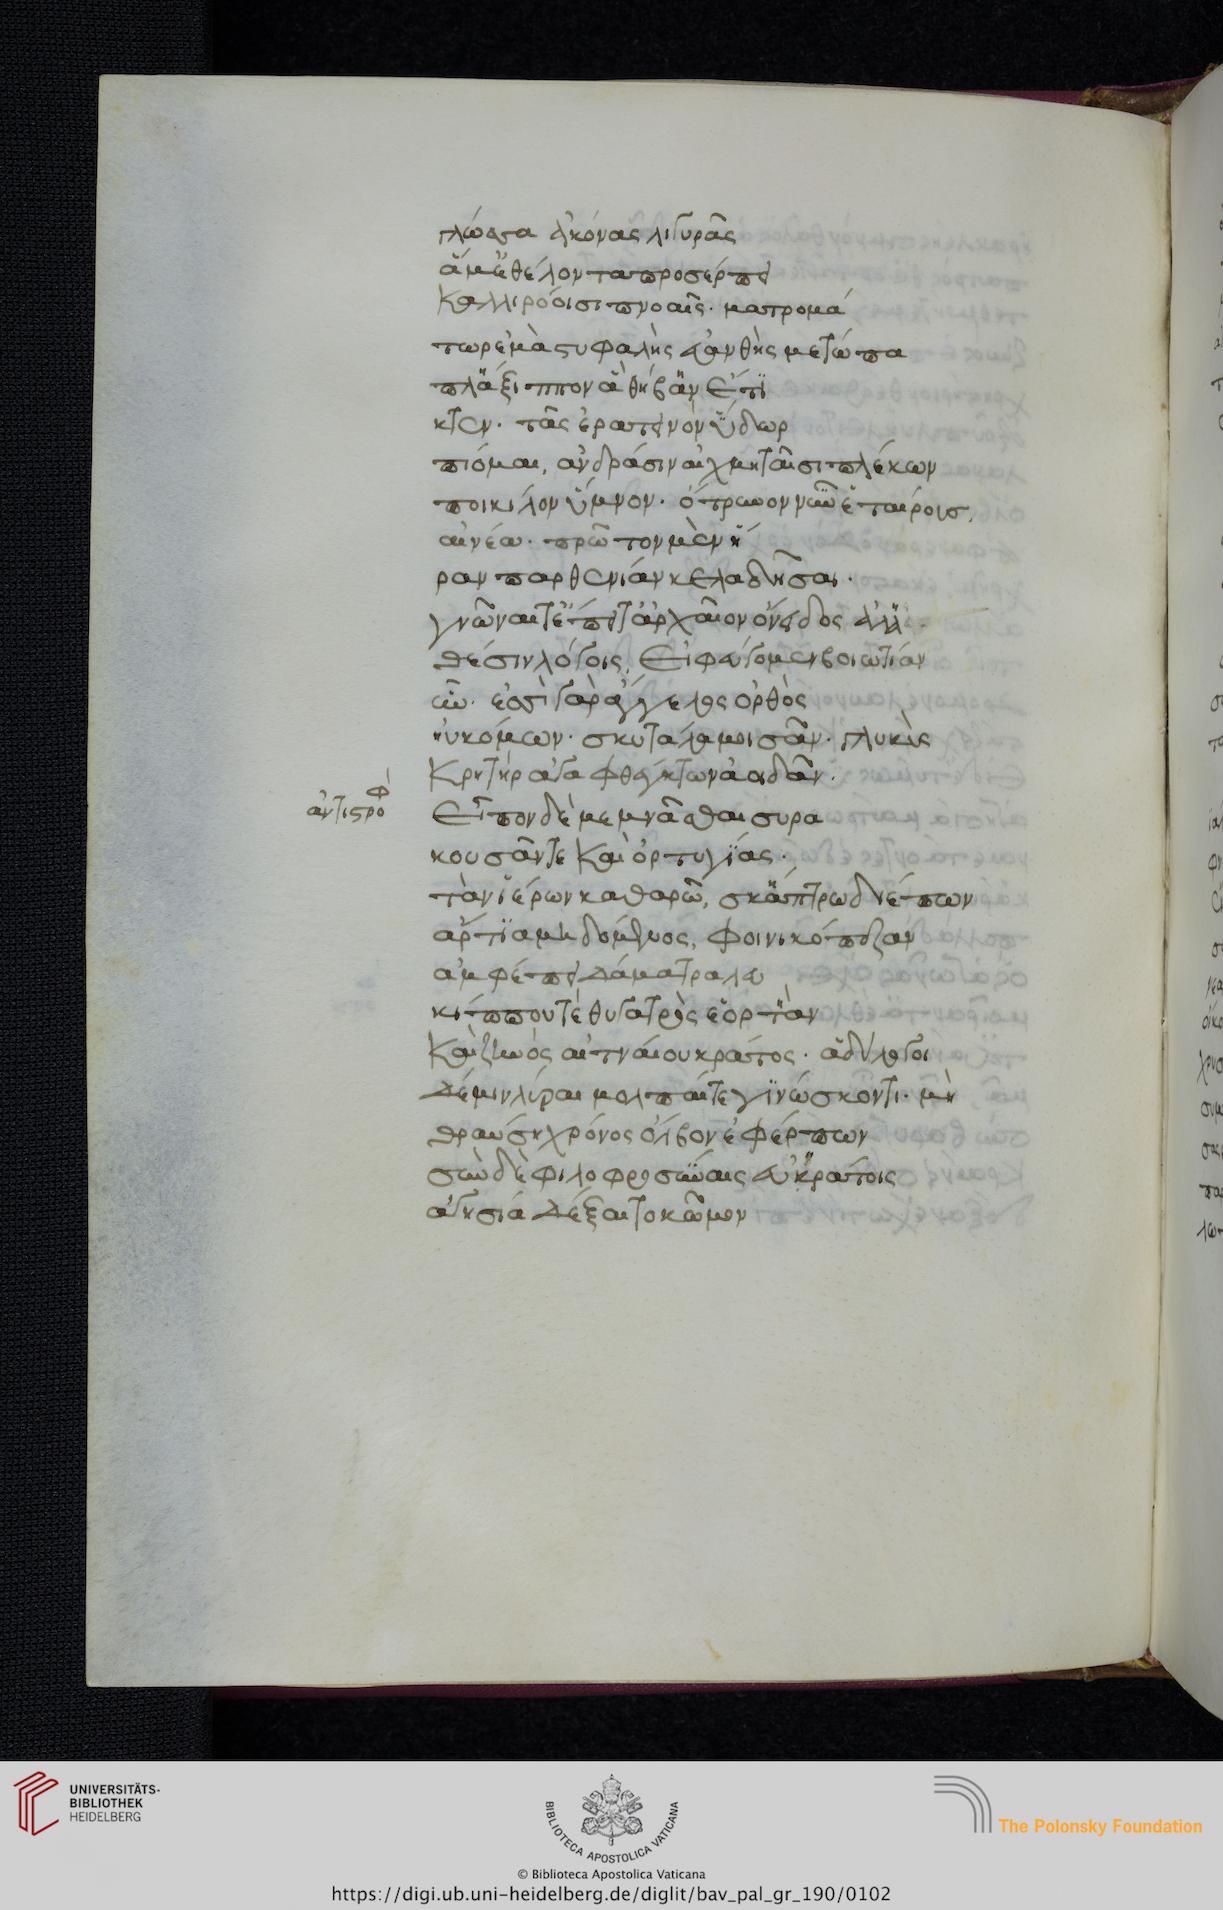 γλώσσα ἀκόνας λιγυρᾶς
ἅ μ' ἐθέλοντα προσέρπει
καλλιρόοισι πνοαῖς· ματρομά
τωρ ἐμὰ στυφαλὶς εὐανθὴς μετώπα
πλάξιππον ἃ θήβαν ἔτι
κτεν· τᾶς ἐρατεινὸν ὕδωρ
πίομαι, ἀνδράσιν αἰχμηταῖσι πλέκων
ποικίλον ὕμνον· ὄτρυνον νῦν ἑταίροις,
αἰνέα· πρῶτον μὲν ἥ
ραν παρθενίαν κελαδῆσαι·
γνῶναι τ' ἔπειτ' ἀρχαῖον ὄνειδος ἀλα
θέσιν λόγοις, εἰ φεύγομεν βοιωτίαν
ὗν· ἐσσὶ γὰρ ἄγγελος ὀρθὸς
ηυκόμων· σκυτάλα μοισᾶν· γλυκὺς
κρητὴρ ἀγαφθέγκτων ἀοιδᾶν·
ἀντιστροφ
Εἶπον δὲ μεμνᾶσθαι συρα
κουσᾶν τε καὶ ὀρτυγίας·
τὰν ἱέρων καθαρῶ, σκάπτρω διέπων
ἄρτια μηδόμενος, φοινικόπεζαν
ἀμφέπει δάματρα λευ
κίππου τε θυγατρὸς ἑορτὰν
καὶ ζηνὸς αἰτναίου κράτος· ἁδύλογοι
δέ μιν λύραι μολπαί τε γινώσκοντι· μὴ
θραύση χρόνος ὄλβον ἐφέρπων
σὺν δὲ φιλοφροσύναις εὐηράτοις
ἀγησία δέξαιτο κῶμον
UNIVERSITÄTS-
BIBLIOTHEK
HEIDELBERG
BIBLIOTECA APOSTOLICA VATICANA
The Polonsky Foundation
© Biblioteca Apostolica Vaticana
https://digi.ub.uni-heidelberg.de/diglit/bav_pal_gr_190/0102